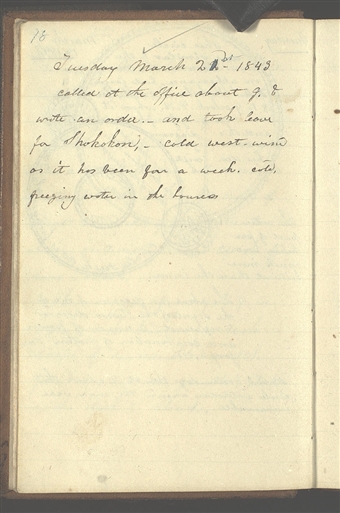 18
Tuesday March 21st 1843
called at the office about 9. &
wrote an order. - and took leave
for Shokokon, - cold west-wind
as it has been for a week. cold,
freezing water in the houses